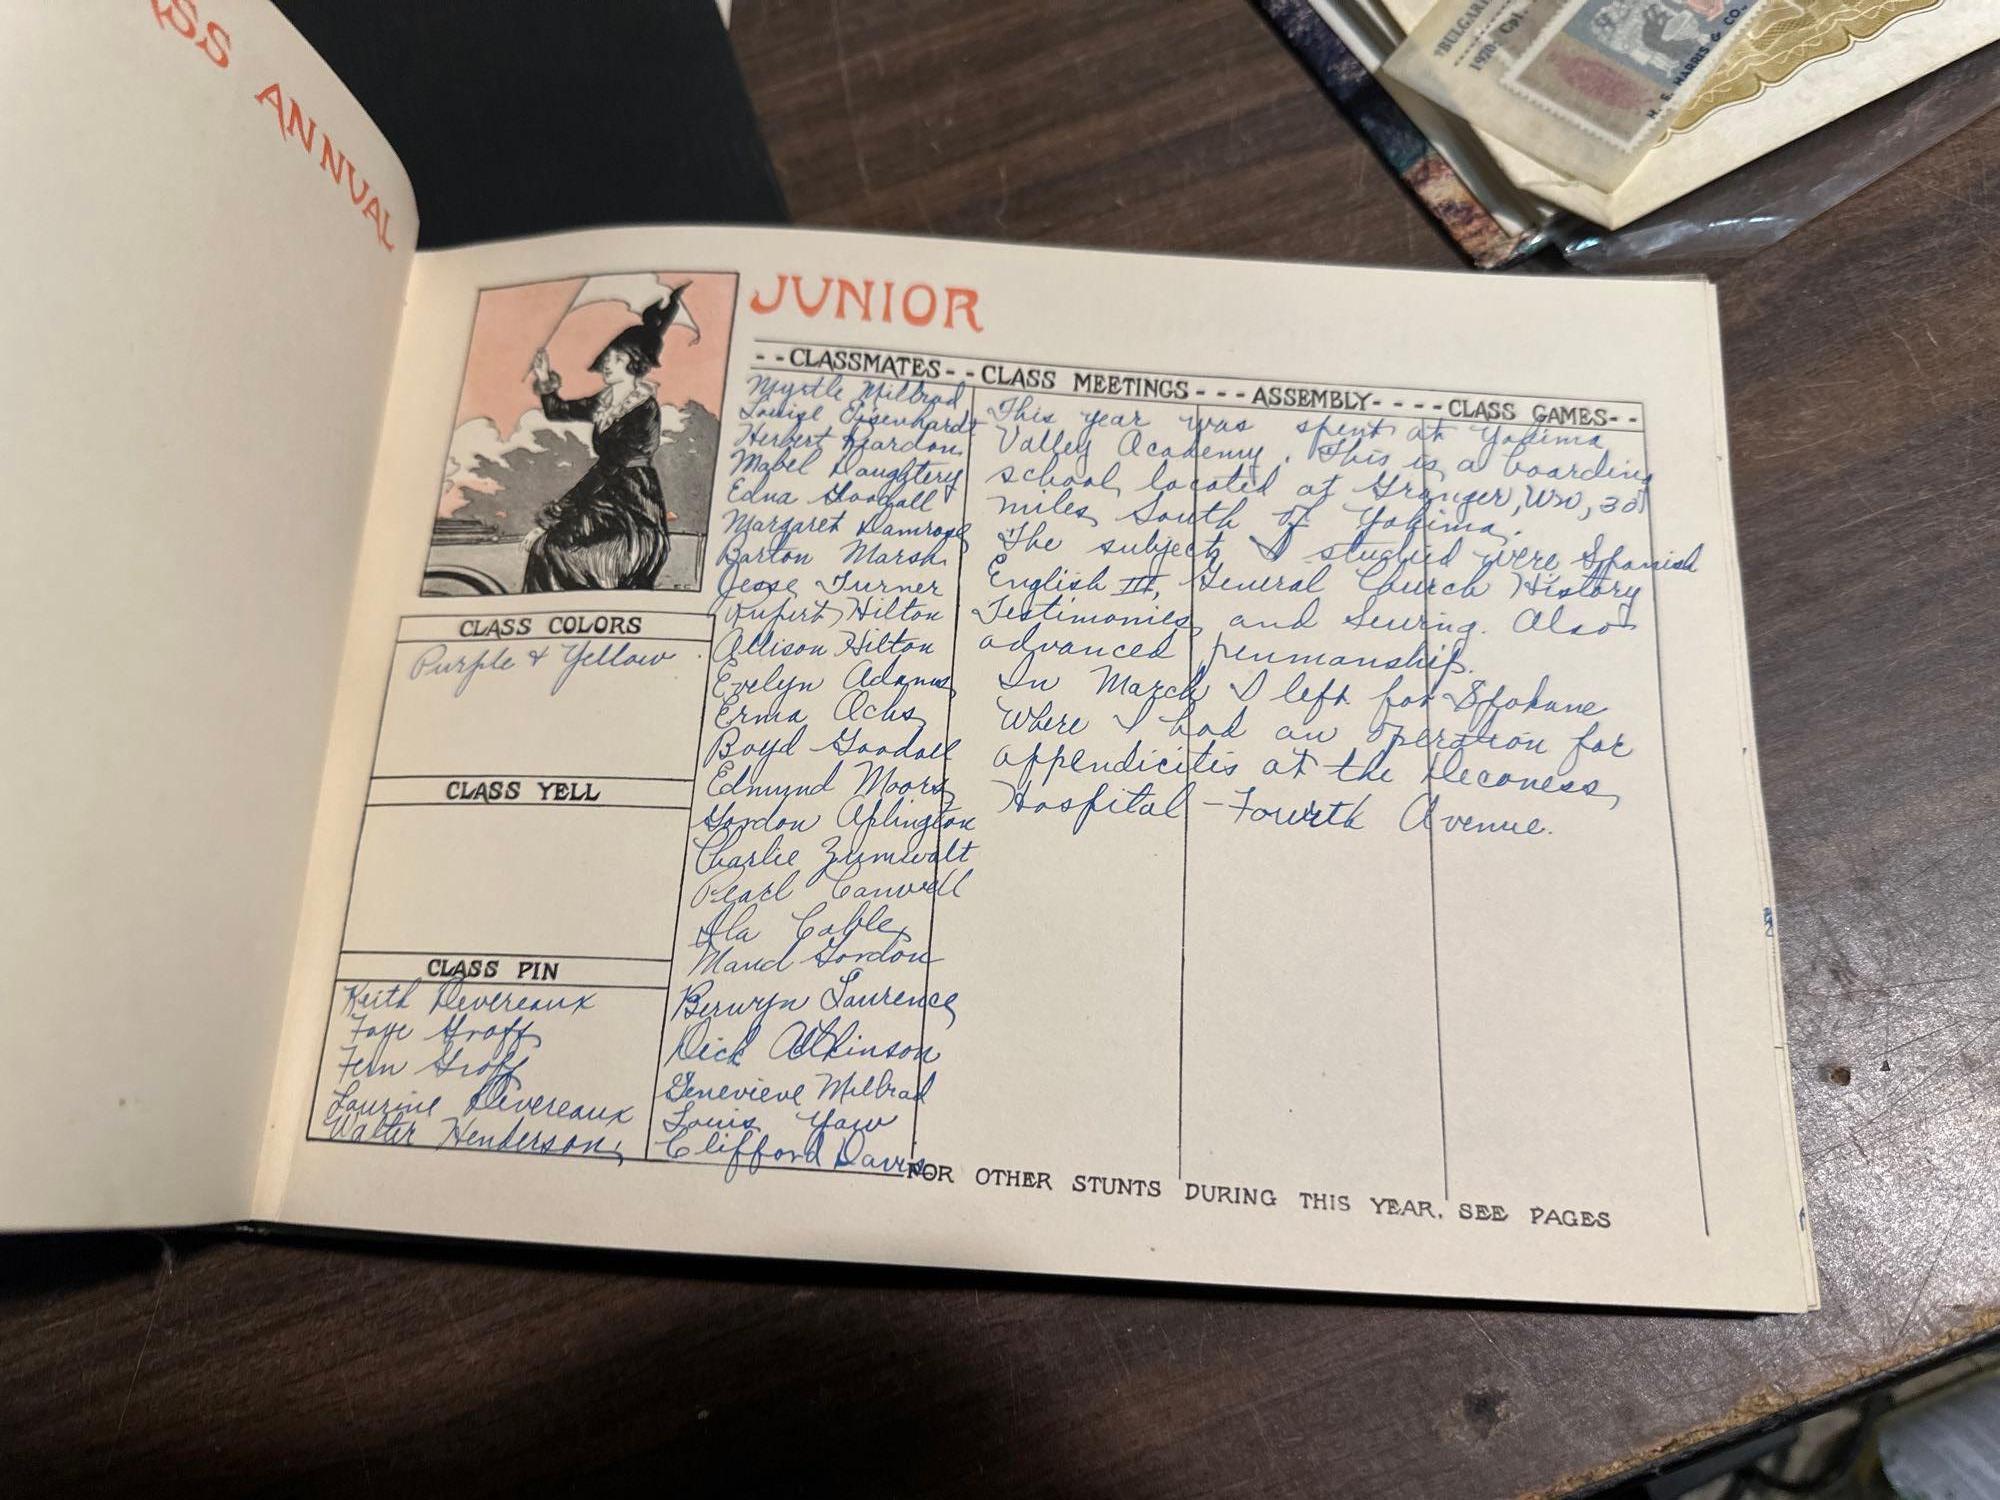 SS ANNUAL
BULGARI
1920.
H. E. HARRIS & CO.
JUNIOR
--CLASSMATES--CLASS MEETINGS---ASSEMBLY----CLASS GAMES--
Myrtle Milbrad
Louise Eisenhardt
Herbert Reardon
Mabel Daughtery
Edna Goodall
Margaret Damrose
Barton Marsh
Jesse Turner
Rupert Hilton
Allison Hilton
Evelyn Adams
Erma Ochs
Boyd Goodall
Edmynd Moors
Gordon Aplington
Charlie Zumwalt
Pearl Canwell
Ila Cable
Maud Gordon
Berwyn Laurence
Dick Atkinson
Genevieve Milbrad
Louis Yaw
Clifford Davis
This year was spent at Yakima
Valley Academy. This is a boarding
school located at Granger, Wn, 30
miles South of Yakima.
The subjects I studied were Spanish
English III, General Church History
Testimonies and Sewing. Also
advanced penmanship.
In March I left for Spokane
Where I had an operation for
appendicitis at the Deconess
Hospital - Fourth Avenue.
CLASS COLORS
Purple & Yellow
CLASS YELL
CLASS PIN
Keith Devereaux
Faye Groff
Fern Groff
Laurine Devereaux
Walter Henderson
FOR OTHER STUNTS DURING THIS YEAR, SEE PAGES